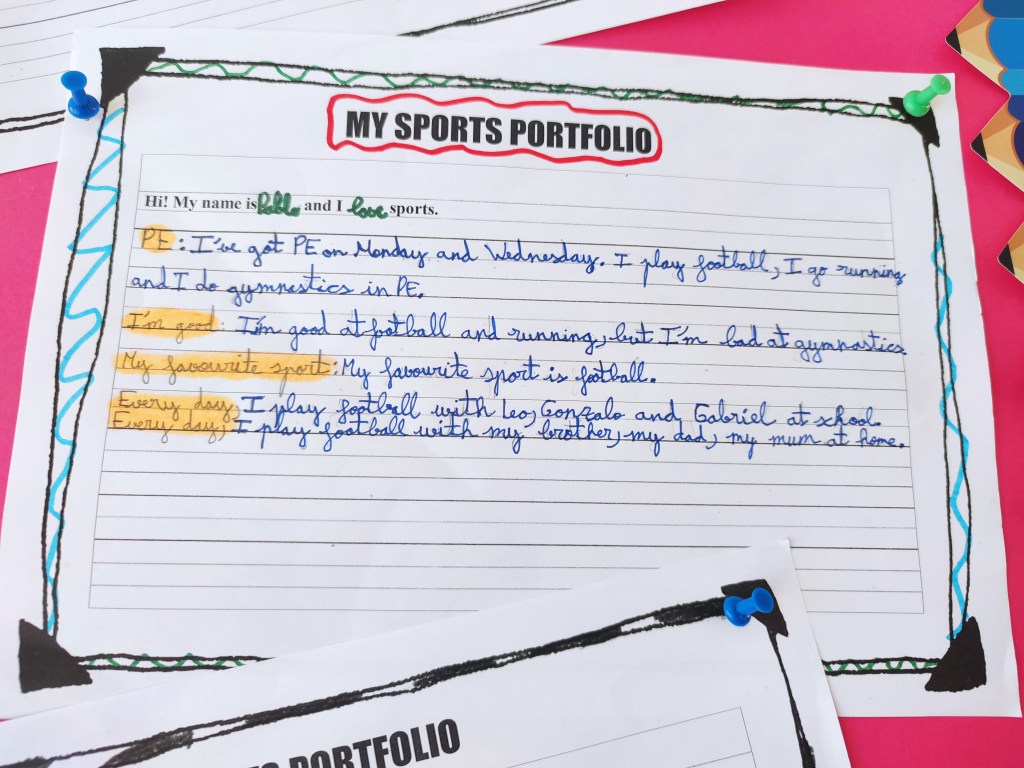 MY SPORTS PORTFOLIO
Hi! My name is Pablo and I love sports.
PE: I've got PE on Monday and Wednesday. I play football, I go running
and I do gymnastics in PE.
I'm good: I'm good at football and running, but I'm bad at gymnastics.
My favourite sport: My favourite sport is football.
Every day, I play football with Leo, Gonzalo and Gabriel at school.
Every day, I play football with my brother, my dad, my mum at home.
PORTFOLIO